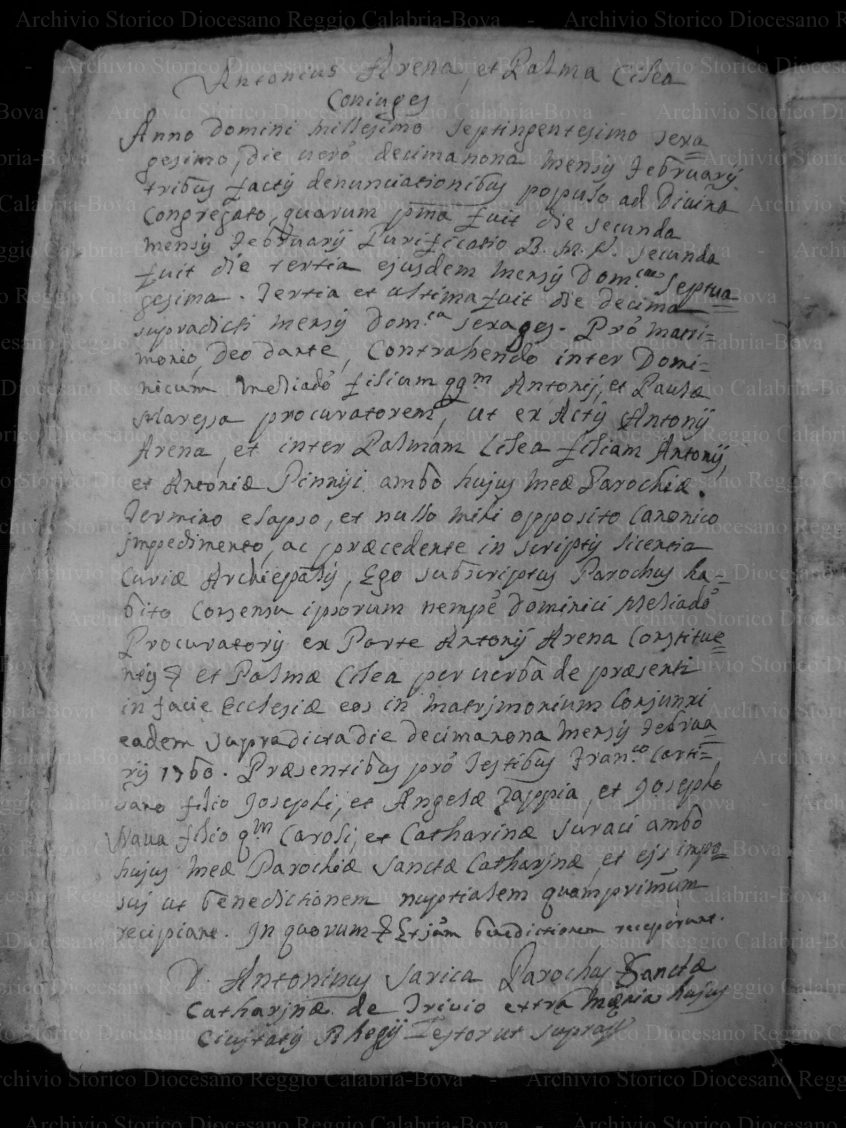 Antonius Arena, et Palma Cilea
Coniuges
Anno domini millesimo septingentesimo sexa=
gesimo, die vero decimanona mensis Februarij
tribus factis denunciationibus populo ad Divina
Congregato, quarum pma fuit die secunda
mensis Februarij Purificatio B. M. V. secunda
fuit die tertia ejusdem mensis Dom.cae Septua=
gesima. Tertia et ultima fuit die decima
supradicti mensis Dom.ca sexages. Pro matri=
monio, Deo dante, Contrahendo inter Domi=
nicum Meliadò filium qqm Antonij, et Paulæ
Maressa procuratorem, ut ex Actis Antonij
Arena, et inter Palmam Cilea filiam Antonij,
et Antoniæ Pinnisi ambo hujus meæ Parochiæ.
Termino elapso, et nullo mihi opposito Canonico
impedimento, ac præcedente in scriptis licentia
Curiæ Archiepalis, Ego subscriptus Parochus ha=
bito Consensu ipsorum nempè Dominici Meliadò
Procuratoris ex Parte Antonij Arena Constitue=
ntis et Palmæ Cilea per verba de præsenti
in facie Ecclesiæ eos in Matrjmonium Conjunxi
eadem supradicta die decimanona mensis Februa=
rij 1760. Præsentibus prò Testibus Fran.co Corti=
sano filio Josephi, et Angelæ Zappia, et Josepho
filio qm Caroli, et Catharinæ Suraci ambo
hujus meæ Parochiæ Sanctæ Catharjnæ, et ejs impo=
sui ut benedictionem nuptialem quamprimùm
recipiant. In quorum & Et jàm benedictionem receperunt.
D. Antoninus Sarica Parochus Sanctæ
Catharjnæ de Trivio extra Mænia hujus
Civitatis Rhegij Testor ut supra
Archivio Storico Diocesano Reggio Calabria-Bova